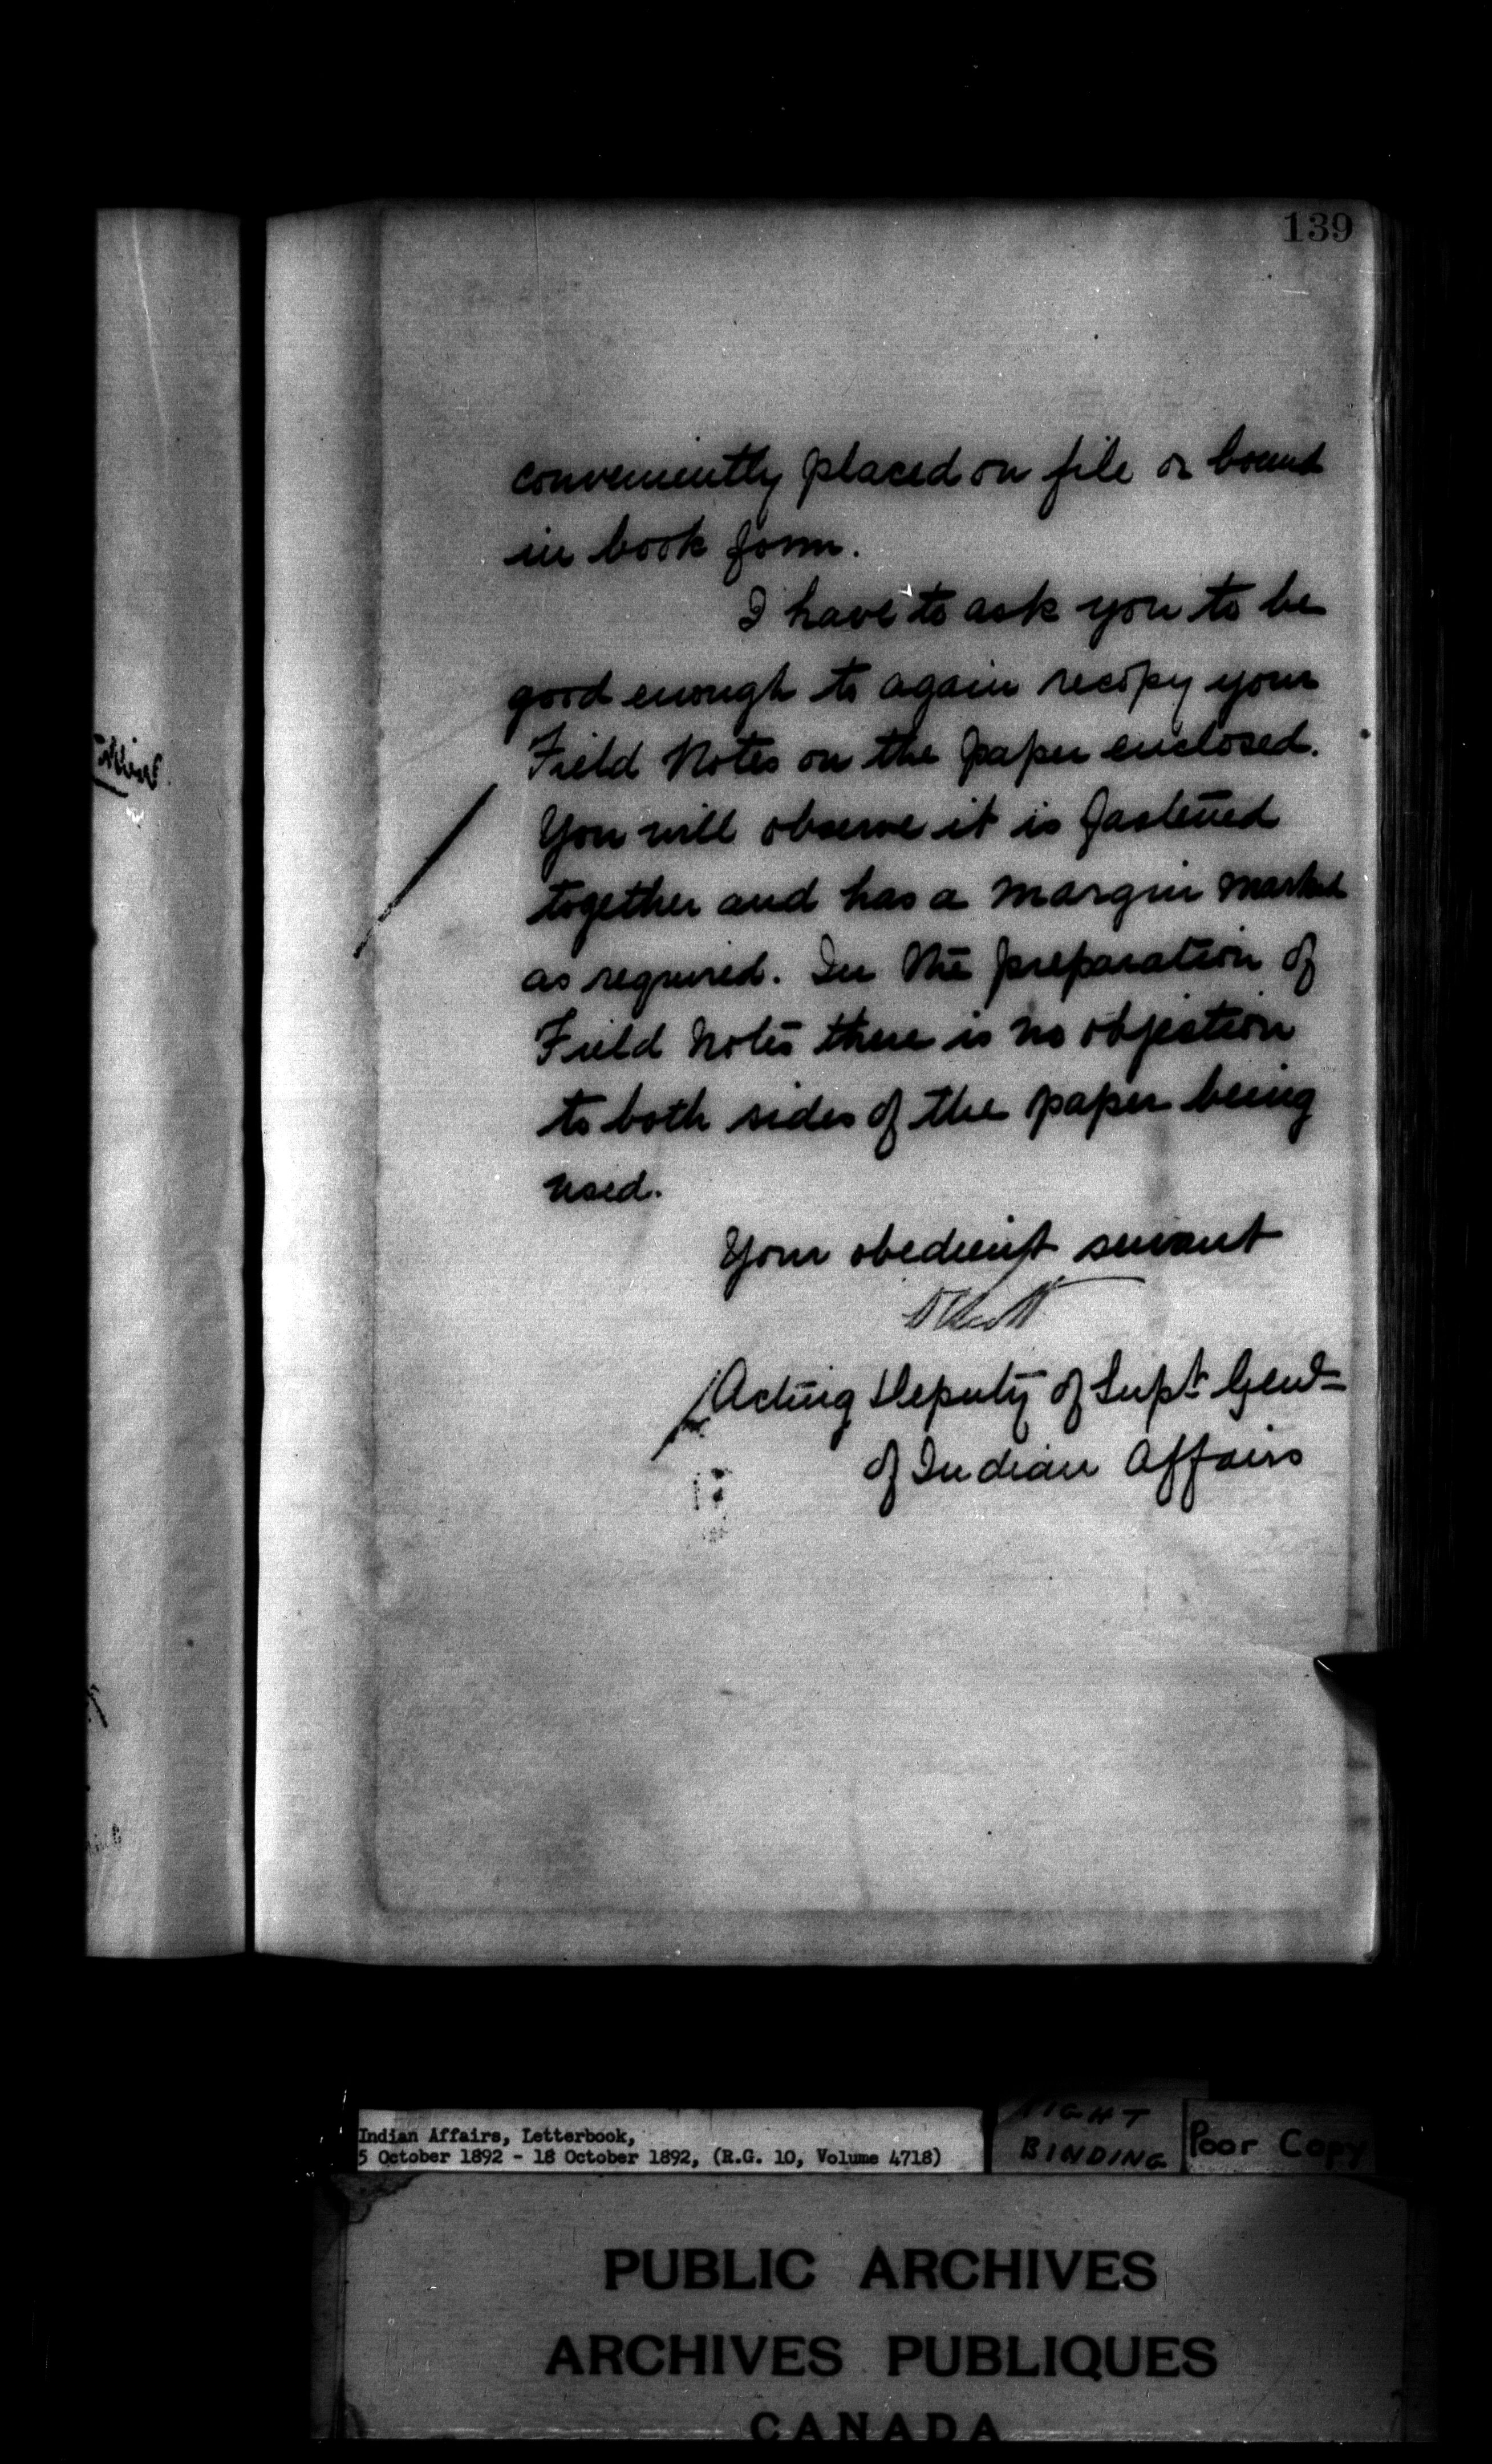 139
conveniently placed on file or bound
in book form.
I have to ask you to be
good enough to again recopy your
Field Notes on the paper enclosed.
You will observe it is fastened
together and has a margin marked
as required. In the preparation of
Field Notes there is no objection
to both sides of the paper being
used.
Your obedient servant
Acting Deputy of Supt. Genl
of Indian Affairs
Indian Affairs, Letterbook,
5 October 1892 - 18 October 1892, (R.G. 10, Volume 4718)
BINDING
Poor Copy
PUBLIC ARCHIVES
ARCHIVES PUBLIQUES
CANADA